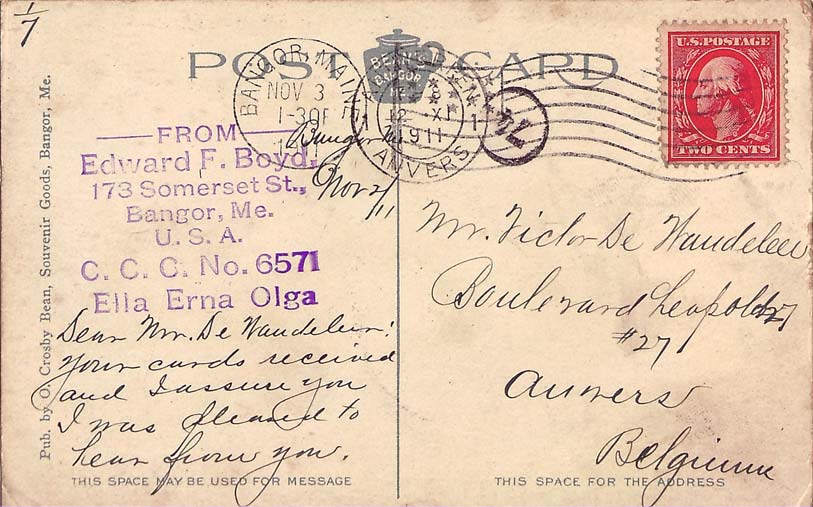 1/7
POST CARD
BEAN'S
BANGOR
BANGOR, MAINE
NOV 3
1-30P
1911
ANVERS
1
12-XI
1911
ANVERS
U.S. POSTAGE
TWO CENTS
Pub. by O. Crosby Bean, Souvenir Goods, Bangor, Me.
FROM
Edward F. Boyd,
173 Somerset St.,
Bangor, Me.
U. S. A.
C. C. C. No. 6571
Ella Erna Olga
Bangor
Nov 2/11
Dear Mr. De Waudeleer:
Your cards received
and I assure you
I was pleased to
hear from you.
THIS SPACE MAY BE USED FOR MESSAGE
Mr. Victor De Waudeleer
Boulevard Leopold 27
#27
Anvers
Belgium
THIS SPACE FOR THE ADDRESS